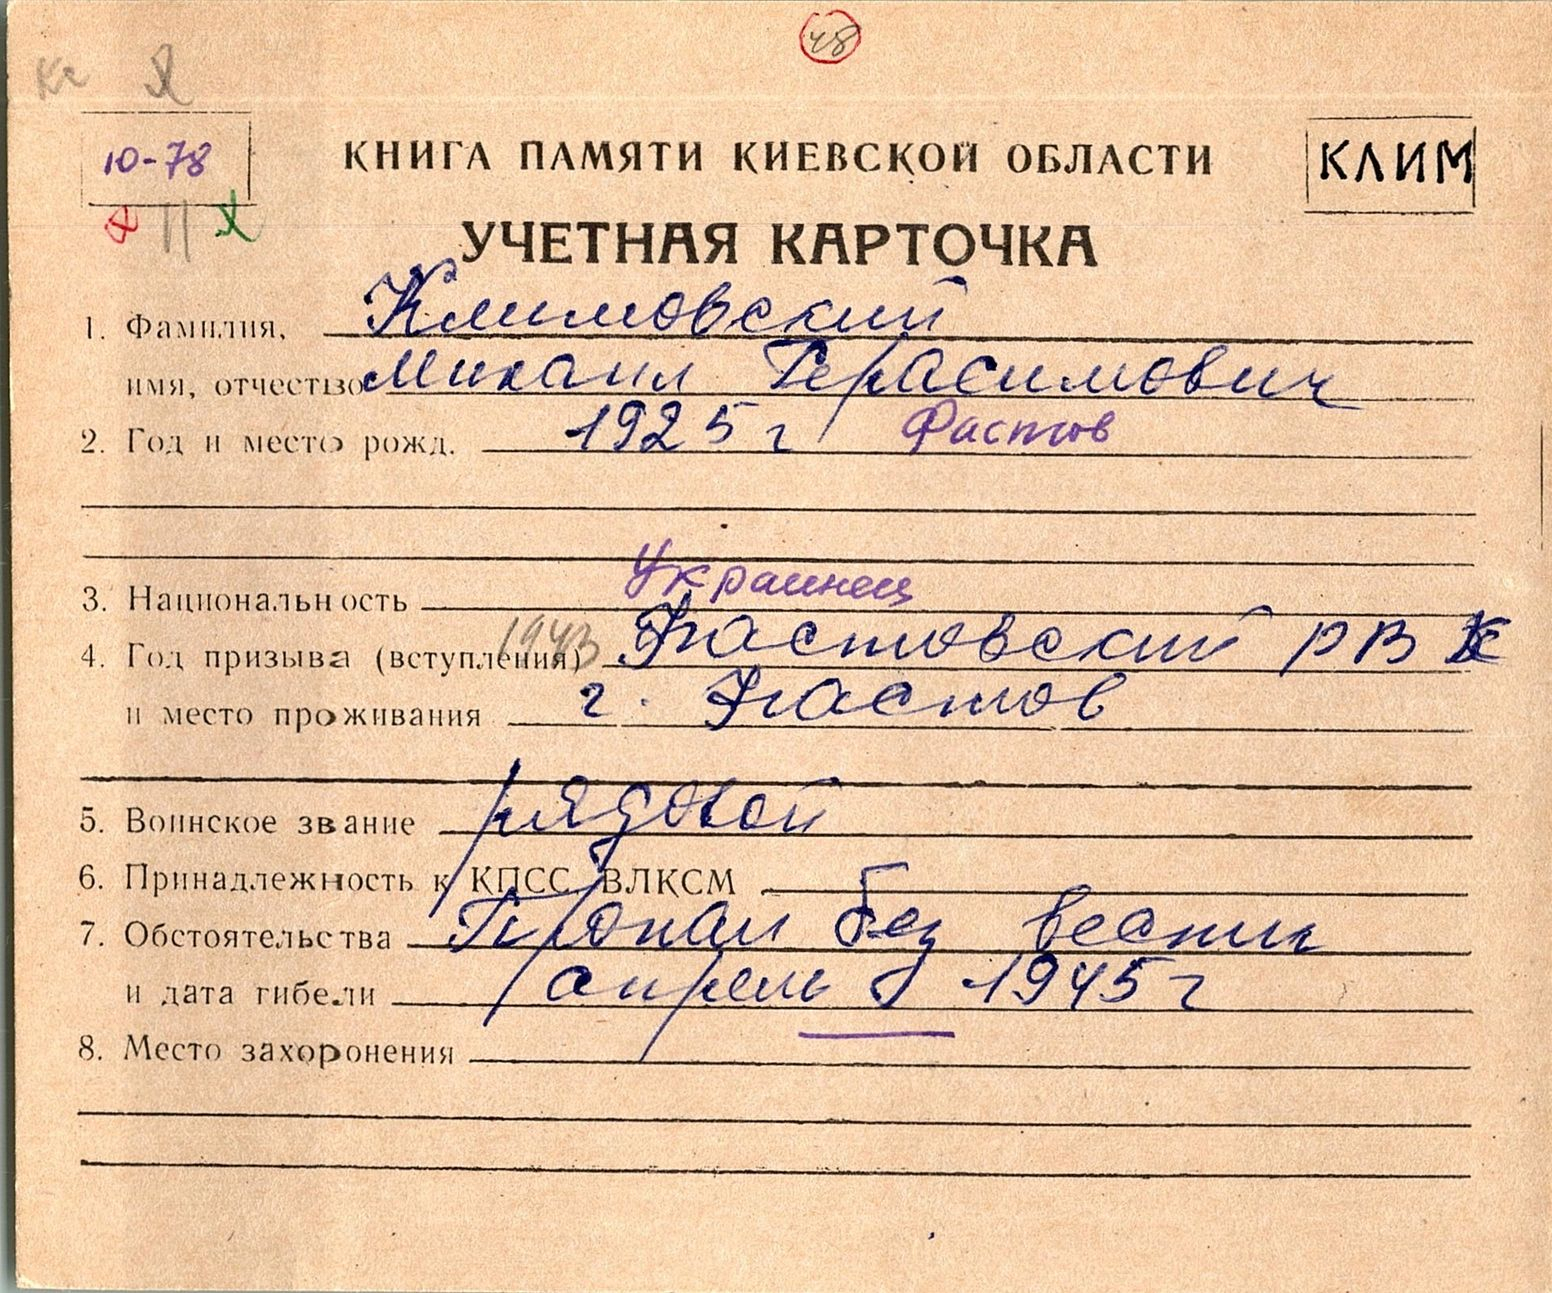 48
Кг Я
10-78
КНИГА ПАМЯТИ КИЕВСКОЙ ОБЛАСТИ
КЛИМ
УЧЕТНАЯ КАРТОЧКА
1. Фамилия, Климовский
имя, отчество Михаил Герасимович
2. Год и место рожд. 1925 г Фастов
3. Национальность Украинец
4. Год призыва (вступления) 1943 Фастовский РВК
и место проживания г. Фастов
5. Воинское звание рядовой
6. Принадлежность к КПСС, ВЛКСМ
7. Обстоятельства Пропал без вести
и дата гибели апрель 1945 г
8. Место захоронения